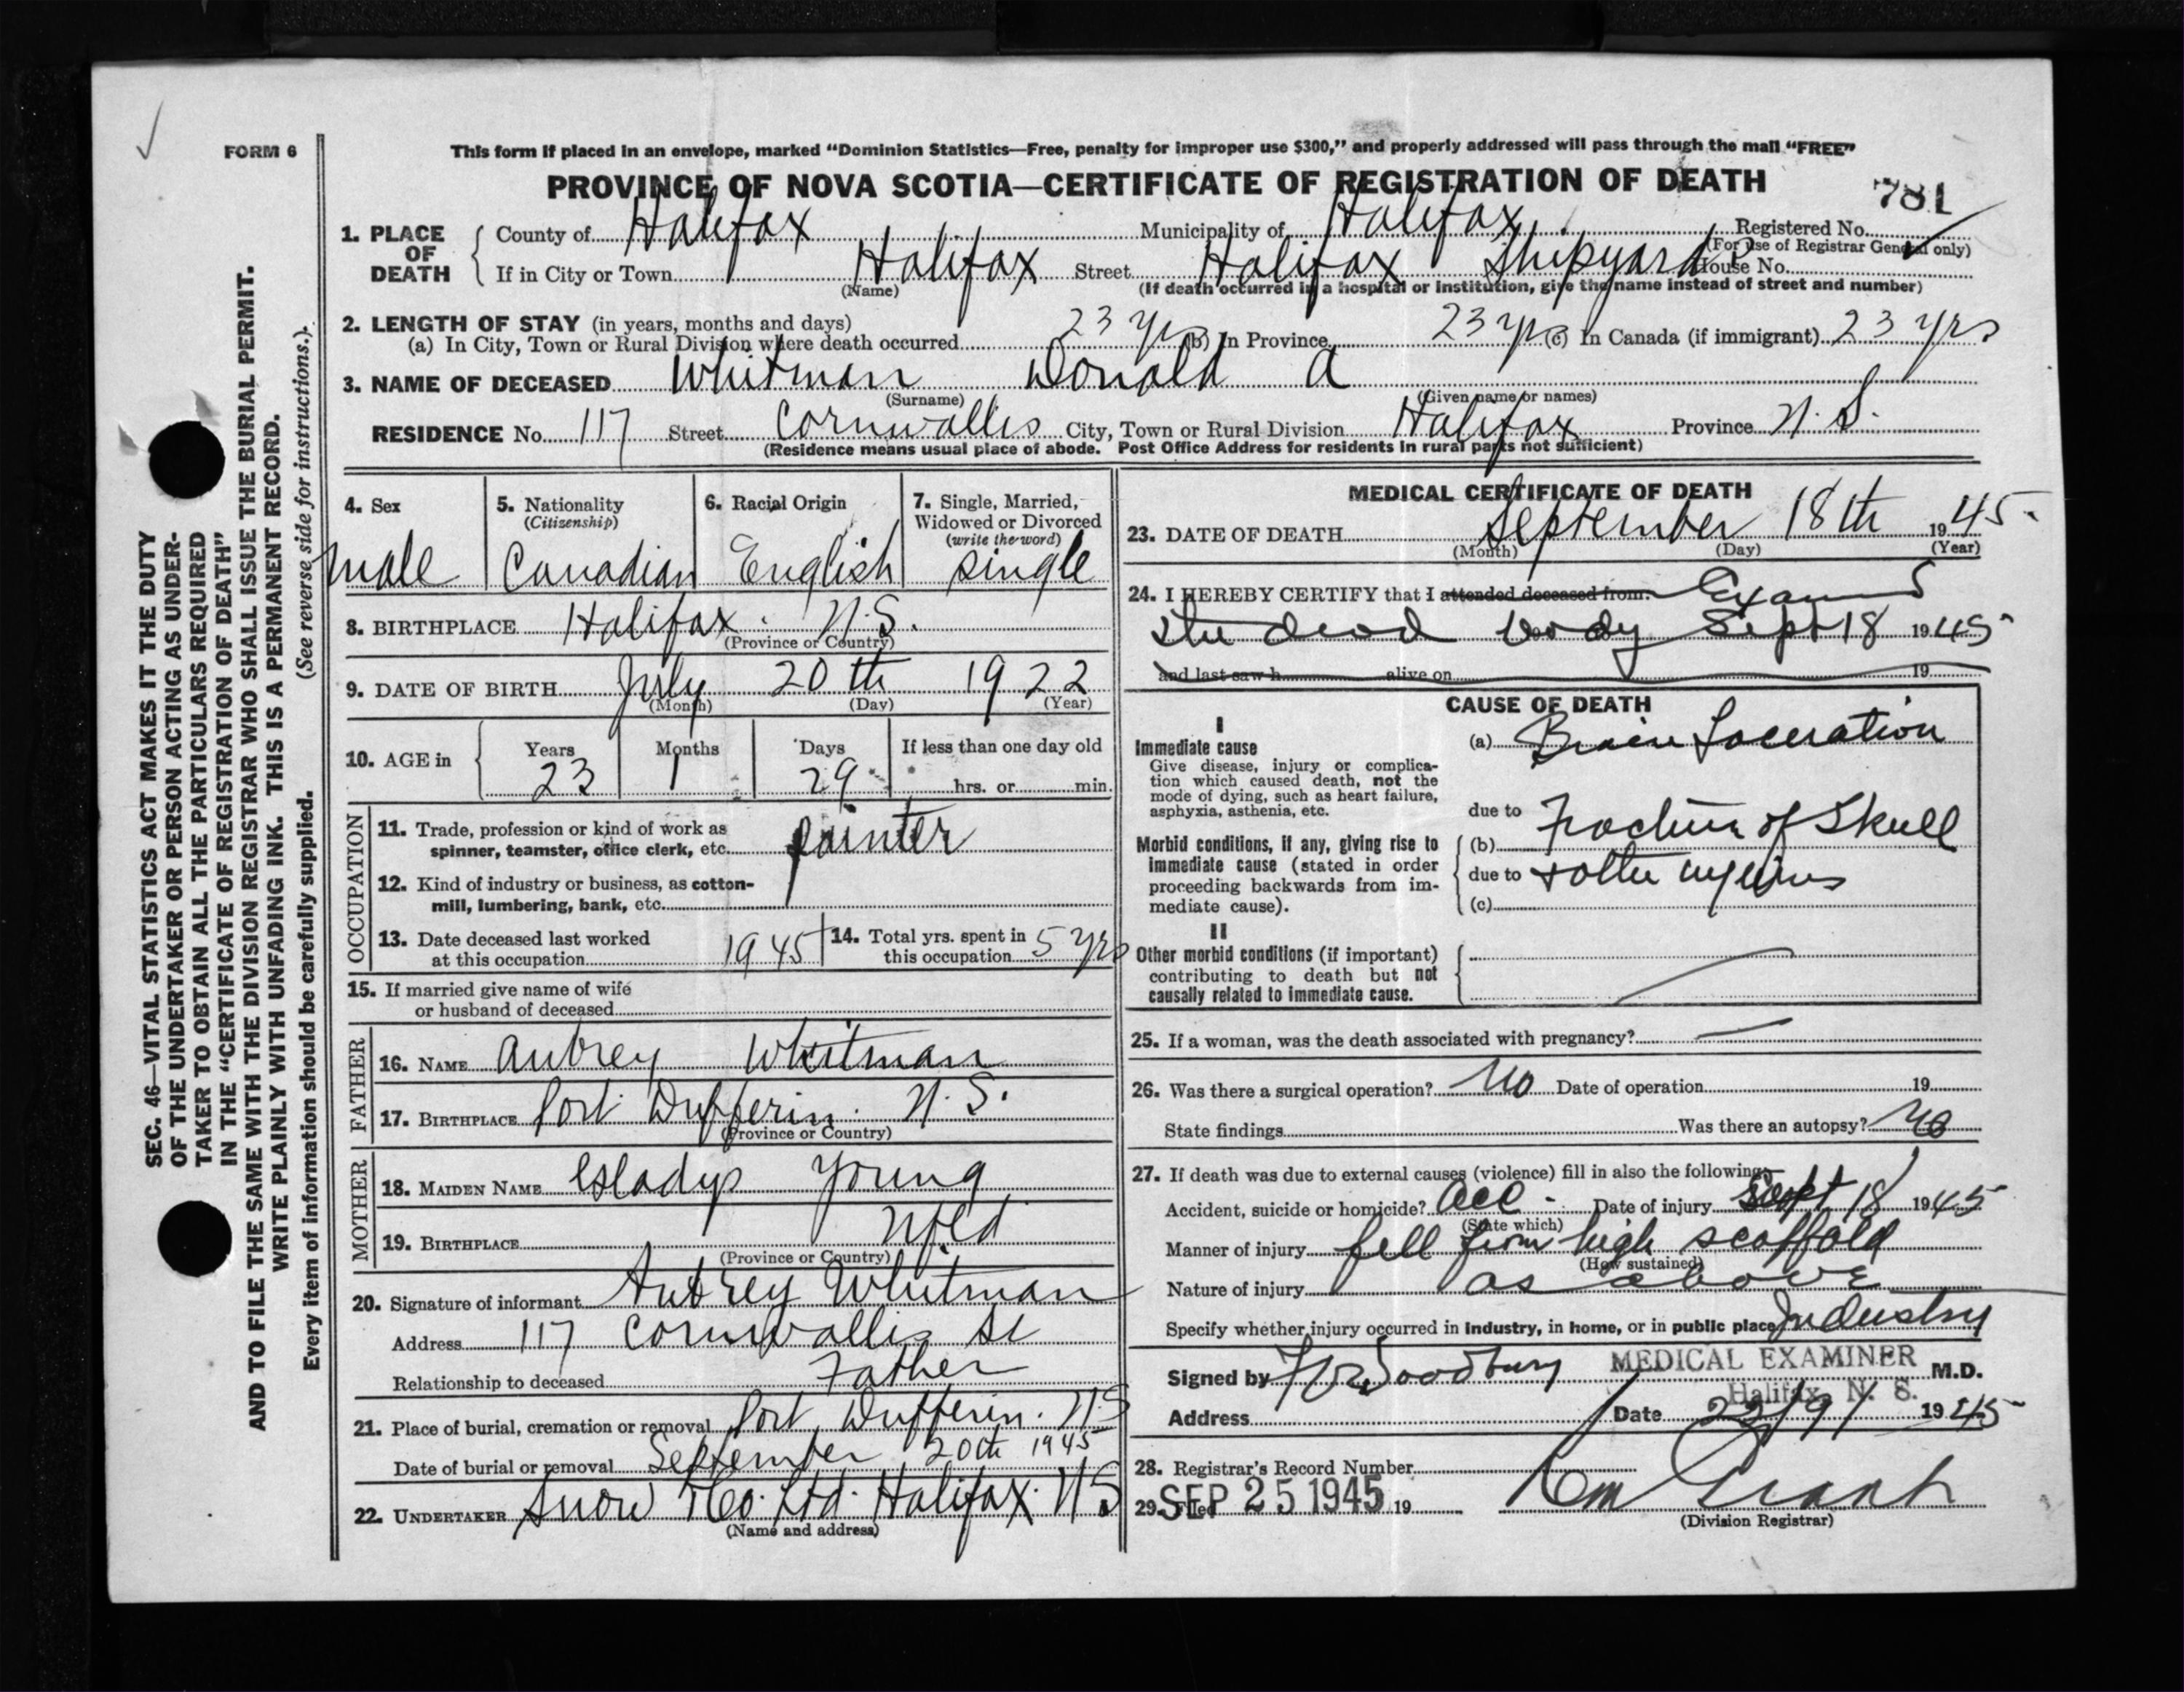 FORM 6
This form if placed in an envelope, marked "Dominion Statistics—Free, penalty for improper use $300," and properly addressed will pass through the mail "FREE"
PROVINCE OF NOVA SCOTIA—CERTIFICATE OF REGISTRATION OF DEATH
781
1. PLACE OF DEATH
County of Halifax Municipality of Halifax Registered No.
(For use of Registrar General only)
If in City or Town Halifax Street Halifax Shipyard House No.
(Name) (If death occurred in a hospital or institution, give the name instead of street and number)
2. LENGTH OF STAY (in years, months and days)
(a) In City, Town or Rural Division where death occurred 23 yrs (b) In Province 23 yrs (c) In Canada (if immigrant) 23 yrs
3. NAME OF DECEASED Whitman Donald A
(Surname) (Given name or names)
RESIDENCE No. 117 Street Cornwallis City, Town or Rural Division Halifax Province N. S.
(Residence means usual place of abode. Post Office Address for residents in rural parts not sufficient)
4. Sex
male
5. Nationality
(Citizenship)
Canadian
6. Racial Origin
English
7. Single, Married,
Widowed or Divorced
(write the word)
single
8. BIRTHPLACE Halifax. N.S.
(Province or Country)
9. DATE OF BIRTH July 20th 1922
(Month) (Day) (Year)
10. AGE in
Years Months Days If less than one day old
23 1 29 hrs. or min.
OCCUPATION
11. Trade, profession or kind of work as
spinner, teamster, office clerk, etc. painter
12. Kind of industry or business, as cotton-
mill, lumbering, bank, etc.
13. Date deceased last worked
at this occupation 1945
14. Total yrs. spent in
this occupation 5 yrs
15. If married give name of wife
or husband of deceased
FATHER
16. NAME Aubrey Whitman
17. BIRTHPLACE Port Dufferin. N.S.
(Province or Country)
MOTHER
18. MAIDEN NAME Gladys Young
19. BIRTHPLACE Nfld
(Province or Country)
20. Signature of informant Aubrey Whitman
Address 117 Cornwallis St
Relationship to deceased Father
21. Place of burial, cremation or removal Port Dufferin. N.S
Date of burial or removal September 20th 1945
22. UNDERTAKER Snow & Co. Ltd. Halifax. N.S.
(Name and address)
MEDICAL CERTIFICATE OF DEATH
23. DATE OF DEATH September 18th 1945.
(Month) (Day) (Year)
24. I HEREBY CERTIFY that I attended deceased from:
the dead body Sept 18 1945
and last saw h alive on 19
CAUSE OF DEATH
I
Immediate cause
Give disease, injury or complica-
tion which caused death, not the
mode of dying, such as heart failure,
asphyxia, asthenia, etc.
(a) Brain Laceration
due to
Morbid conditions, if any, giving rise to
immediate cause (stated in order
proceeding backwards from im-
mediate cause).
(b) Fracture of Skull
due to + other injuries
(c)
II
Other morbid conditions (if important)
contributing to death but not
causally related to immediate cause.
25. If a woman, was the death associated with pregnancy?
26. Was there a surgical operation? No Date of operation 19
State findings Was there an autopsy? No
27. If death was due to external causes (violence) fill in also the following:
Accident, suicide or homicide? Acc - Date of injury Sept 18 1945
(State which)
Manner of injury fell from high scaffold
(How sustained)
Nature of injury as above
Specify whether injury occurred in industry, in home, or in public place Industry
Signed by Woodbury MEDICAL EXAMINER M.D.
Halifax, N. S.
Address Date 22/9/ 1945
28. Registrar's Record Number
29. Filed SEP 25 1945 19 Grant
(Division Registrar)
SEC. 46—VITAL STATISTICS ACT MAKES IT THE DUTY
OF THE UNDERTAKER OR PERSON ACTING AS UNDER-
TAKER TO OBTAIN ALL THE PARTICULARS REQUIRED
IN THE "CERTIFICATE OF REGISTRATION OF DEATH"
AND TO FILE THE SAME WITH THE DIVISION REGISTRAR WHO SHALL ISSUE THE BURIAL PERMIT.
WRITE PLAINLY WITH UNFADING INK. THIS IS A PERMANENT RECORD.
Every item of information should be carefully supplied. (See reverse side for instructions.)